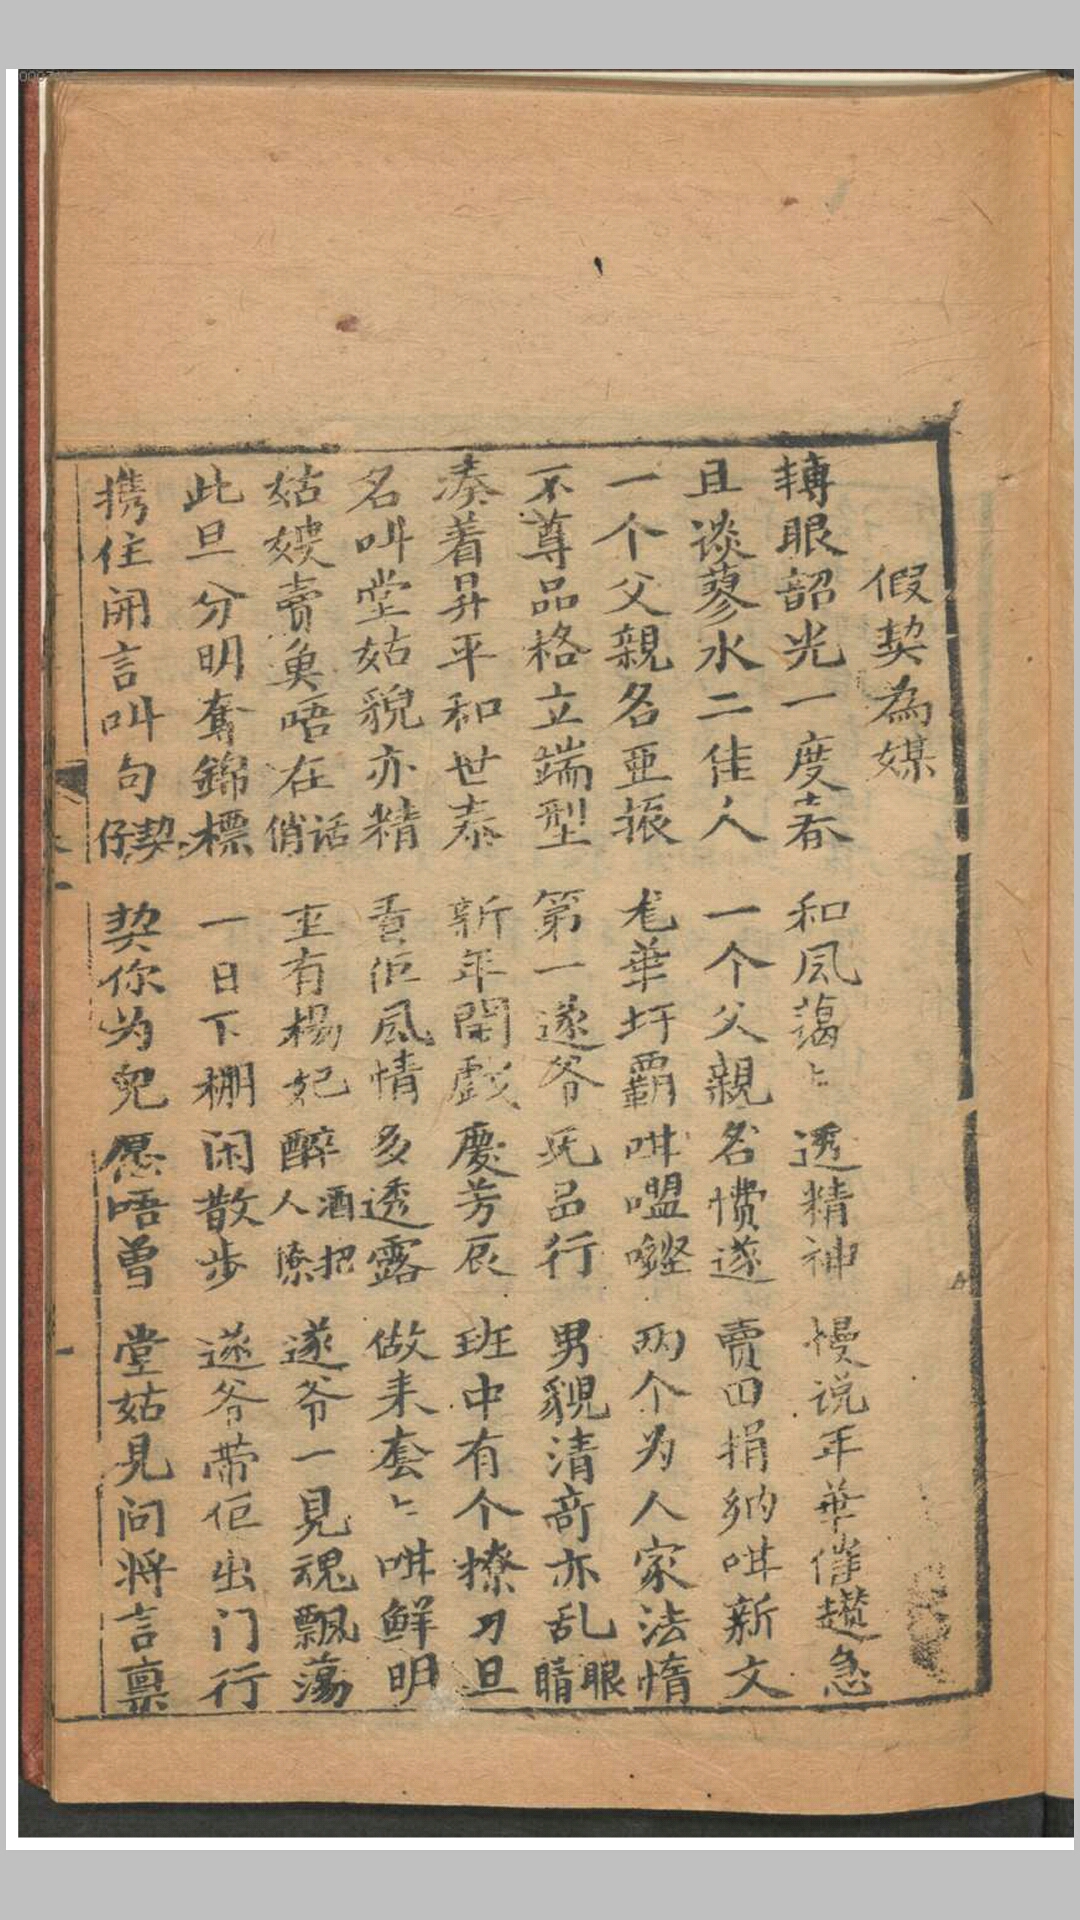 假契為媒
轉眼韶光一度春 和风蕩〻透精神 慢说年華催趲急
且谈蓼水二佳人 一个父親名慣遂 賣田捐納咁新文
一个父親名亜振 尨華圩覇咁嘅 两个为人家法惰
不尊品格立端型 第一遂爷旡品行 男貌清竒亦乱眼睛
凑着昇平和世泰 新年開戯慶芳辰 班中有个撩刀旦
名叫堂姑貌亦精 看佢風情多透露 做来套〻咁鲜明
姑嫂賣魚唔在话俏 至有楊妃醉酒把人撩 遂爷一見魂飄蕩
此旦分明奪錦標 一日下棚闲散步 遂爷帶佢出门行
携住開言叫句契仔 契你为兒愿唔曽 堂姑見问将言禀